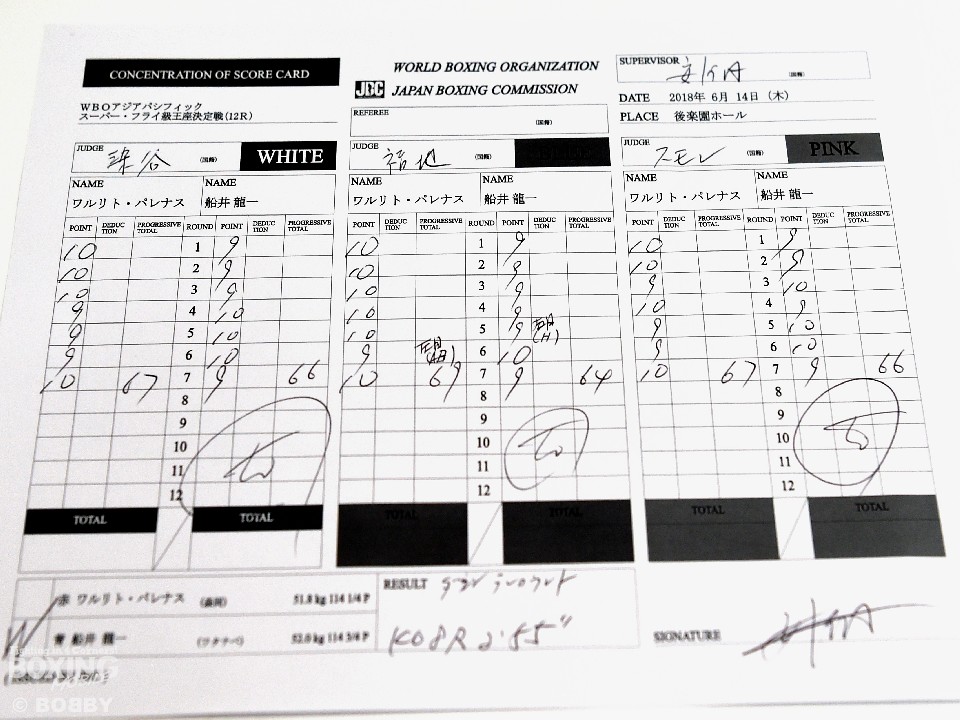 CONCENTRATION OF SCORE CARD
WORLD BOXING ORGANIZATION
JBC JAPAN BOXING COMMISSION
SUPERVISOR (国籍)
WBOアジアパシフィック
スーパー・フライ級王座決定戦(12R)
REFEREE (国籍)
DATE 2018年 6月 14日 (木)
PLACE 後楽園ホール
JUDGE 染谷 (国籍) WHITE
JUDGE 福地 (国籍)
JUDGE スモレ (国籍) PINK
NAME NAME
ワルリト・パレナス 船井 龍一
NAME NAME
ワルリト・パレナス 船井 龍一
NAME NAME
ワルリト・パレナス 船井 龍一
POINT DEDUCTION PROGRESSIVE TOTAL ROUND POINT DEDUCTION PROGRESSIVE TOTAL
10 1 9
10 2 9
10 3 9
9 4 10
9 5 10
9 6 10
10 67 7 9 66
8
9
10
11
12
TOTAL TOTAL
POINT DEDUCTION PROGRESSIVE TOTAL ROUND POINT DEDUCTION PROGRESSIVE TOTAL
10 1 9
10 2 9
10 3 9
10 4 9
10 5 9
9 6 10
10 69 7 9 64
8
9
10
11
12
TOTAL TOTAL
POINT DEDUCTION PROGRESSIVE TOTAL ROUND POINT DEDUCTION PROGRESSIVE TOTAL
10 1 9
10 2 9
9 3 10
10 4 9
9 5 10
9 6 10
10 67 7 9 66
8
9
10
11
12
TOTAL TOTAL
赤 ワルリト・パレナス (森岡) 51.8 kg 114 1/4 P
W 青 船井 龍一 (ワタナベ) 52.0 kg 114 3/4 P
RESULT
KO 8R 2'55"
SIGNATURE
BOXING
© BOBBY